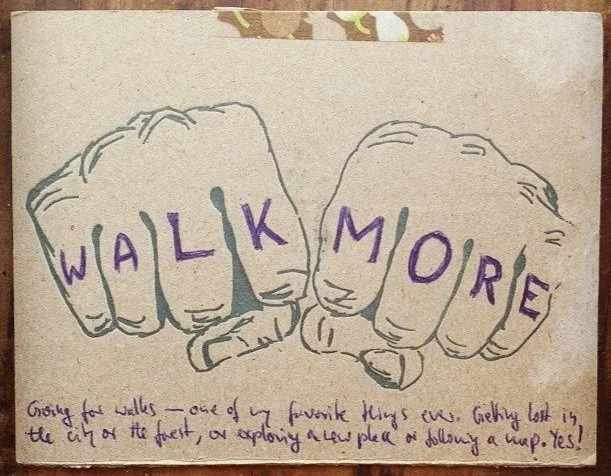 WALK MORE
Going for walks — one of my favorite things ever. Getting lost in
the city or the forest, or exploring a new place or following a map. Yes!